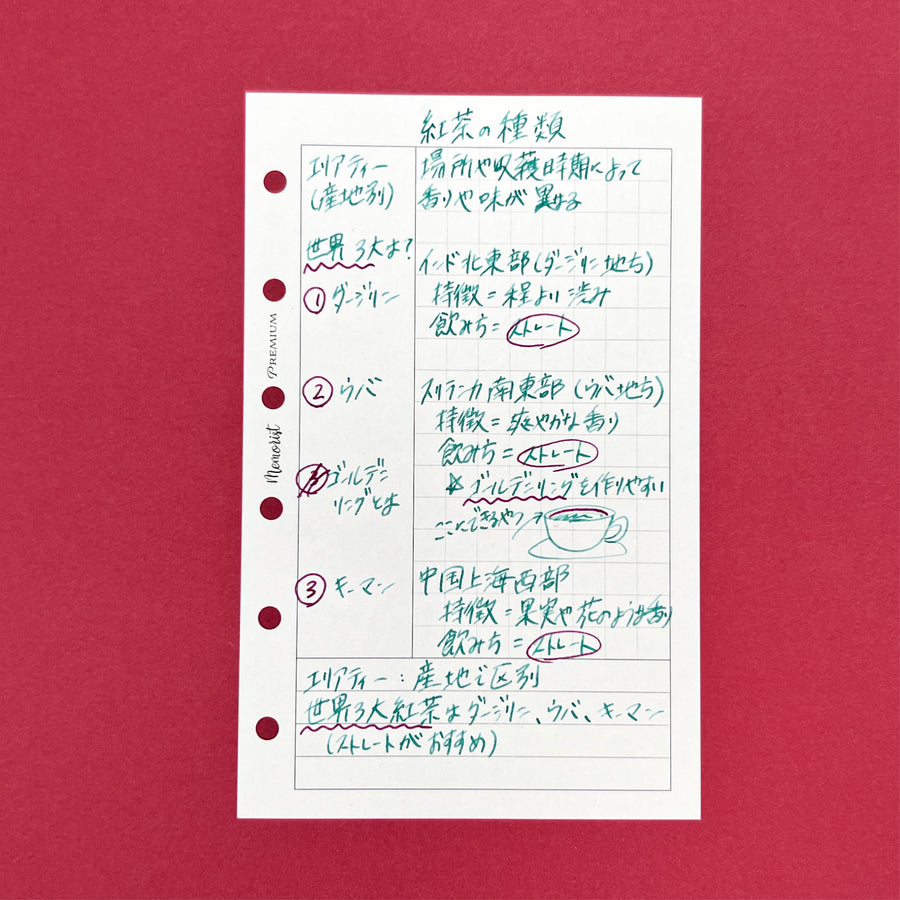 紅茶の種類
エリアティー
(産地別)
場所や収穫時期によって
香りや味が異なる
世界3大は?
① ダージリン
インド北東部(ダージリン地方)
特徴=程よい渋み
飲み方=ストレート
② ウバ
スリランカ南東部(ウバ地方)
特徴=爽やかな香り
飲み方=ストレート
☆ゴールデンリングを作りやすい
ゴールデン
リングとは
ここにできるやつ→
③ キーマン
中国上海西部
特徴=果実や花のような香り
飲み方=ストレート
エリアティー:産地で区別
世界3大紅茶はダージリン、ウバ、キーマン
(ストレートがおすすめ)
Memorist PREMIUM